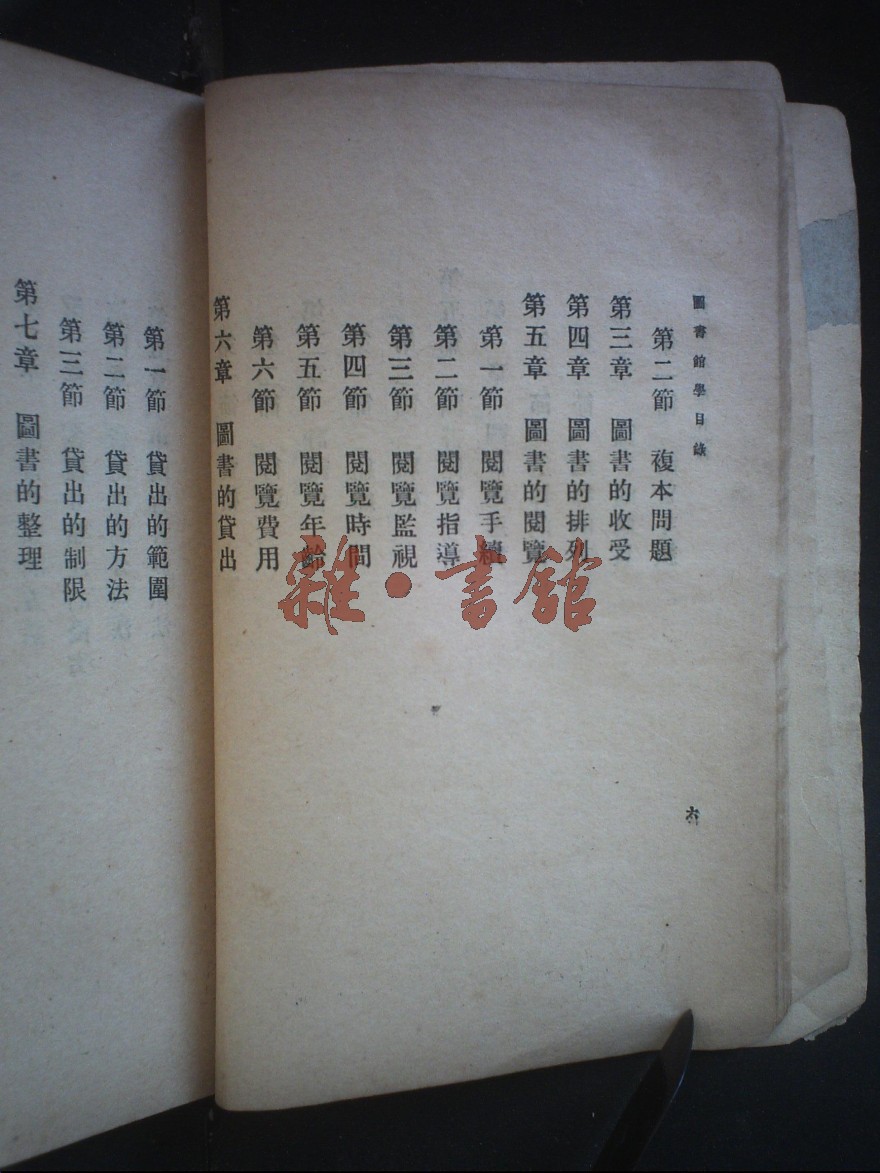 圖書館學目錄
第二節 複本問題
第三章 圖書的收受
第四章 圖書的排列
第五章 圖書的閱覽
第一節 閱覽手續
第二節 閱覽指導
第三節 閱覽監視
第四節 閱覽時間
第五節 閱覽年齡
第六節 閱覽費用
第六章 圖書的貸出
六
第一節 貸出的範圍
第二節 貸出的方法
第三節 貸出的制限
第七章 圖書的整理
雜·書館